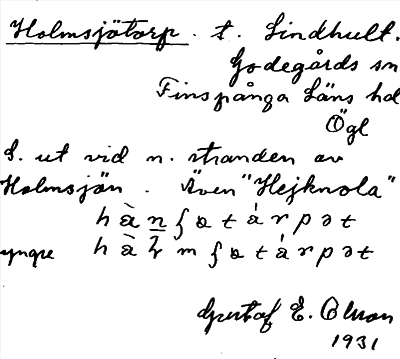 Holmsjötorp. t. Lindhult.
Godegårds sn
Finspånga Läns hd
Ögl
L. ut vid n. stranden av
Holmsjön. Även "Hejknola"
hὰn̲ʃɵtárpət
yngre hὰɫmʃɵtárpət
Gustaf E. Olsson
1931